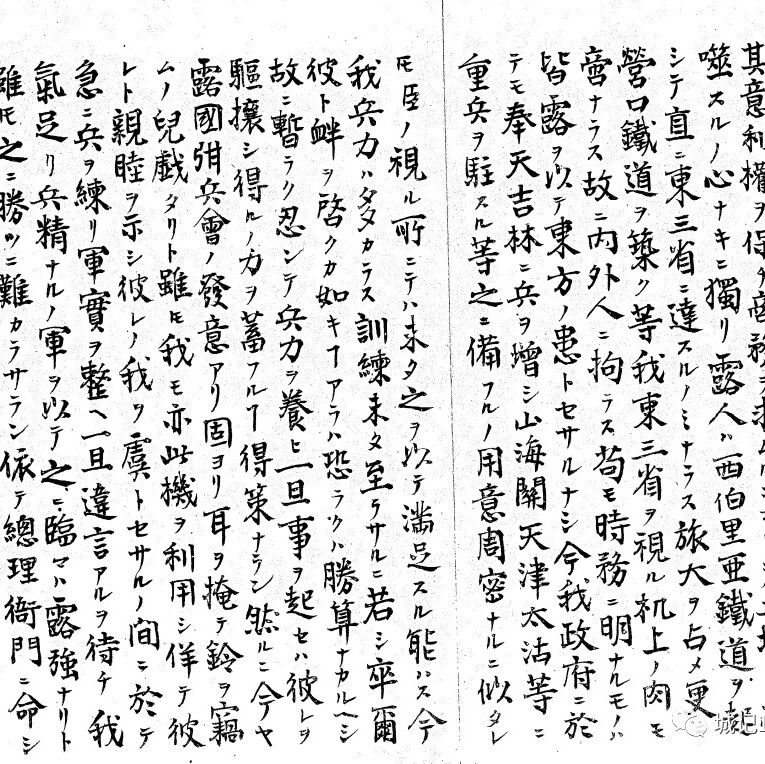 其意利權ヲ保チ商務ヲ求ムル
噬スルノ心ナキニ獨リ露人ハ西伯里亜鐵道ヲ起
シテ直ニ東三省ニ達スルノミナラス旅大ヲ占メ更
營口鐵道ヲ築ク等我東三省ヲ視ル机上ノ肉モ
啻ナラス故ニ内外人ニ拘ラス苟モ時務ニ明ナルモノハ
皆露ヲ以テ東方ノ患トセサルナシ今我政府ニ於
テモ奉天吉林ニ兵ヲ增シ山海關天津太沽等ニ
重兵ヲ駐スル等之ニ備フルノ用意周密ナルニ似タレ
ㇳモ臣ノ視ル所ニテハ未タ之ヲ以テ滿足スル能ハス今
我兵力ハ多カラス訓練未タ至ラサルニ若シ卒爾
彼ト衅ヲ啓クカ如キヿアラハ恐ラクハ勝算ナカルヘシ
故ニ暫ラク忍ンテ兵力ヲ養ヒ一旦事ヲ起セハ彼レヲ
驅攘シ得ルノ力ヲ蓄フルヿ得策ナラン然ルニ今ヤ
露國弭兵會ノ發意アリ固ヨリ耳ヲ掩テ鈴ヲ竊
ムノ兒戲タリト雖モ我モ亦此機ヲ利用シ佯テ彼
レト親睦ヲ示シ彼レノ我ヲ虞トセサルノ間ニ於テ
急ニ兵ヲ練リ軍實ヲ整ヘ一旦違言アルヲ待チ我
氣足リ兵精ナルノ軍ヲ以テ之ニ臨マハ露強ナリト
雖モ之ニ勝ツニ難カラサラン依テ總理衙門ニ命シ